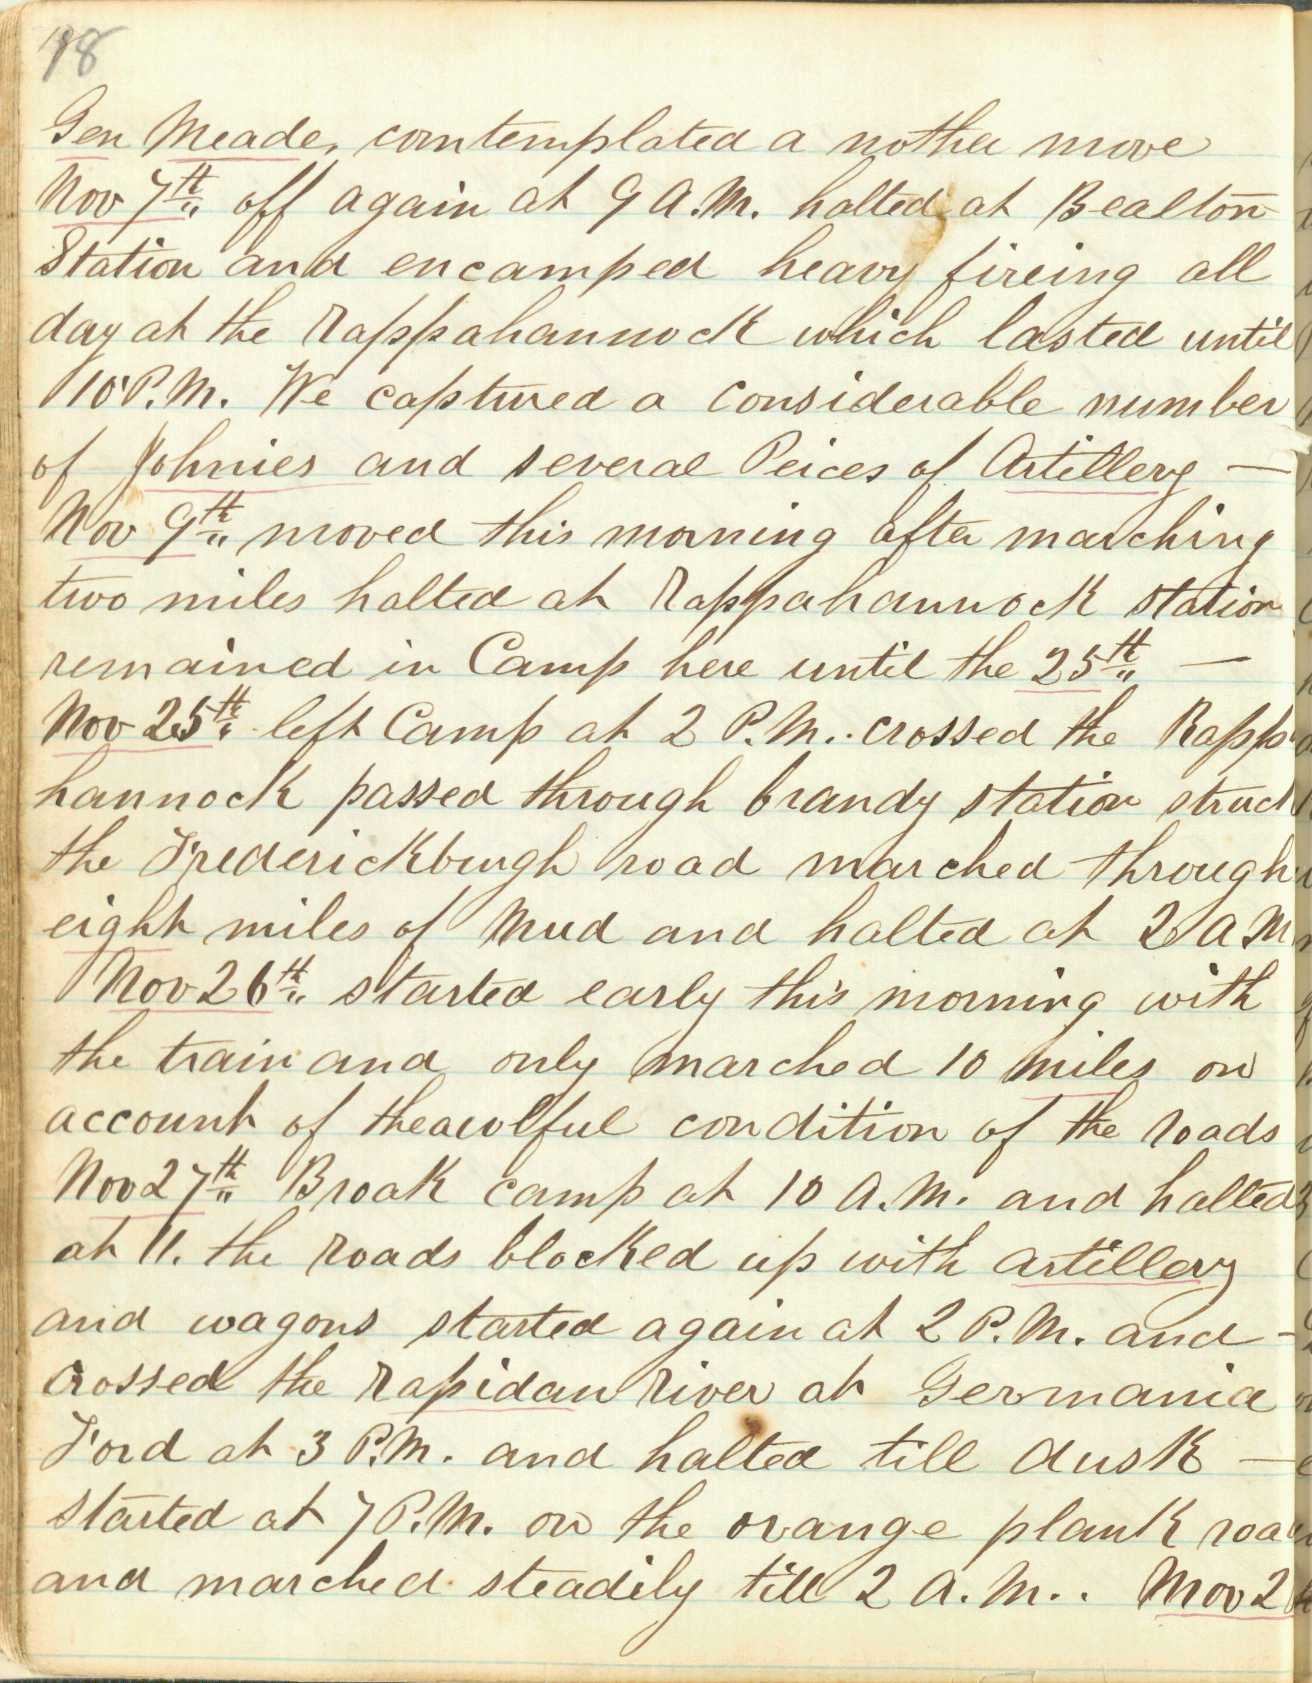 98
Gen Meade, comtemplated a nother move
Nov 7th off again at 9 A.M. halted at Bealton
Station and encamped heavy fireing all
day at the Rappahannock which lasted until
10 P.M. We captured a considerable number
of Johnies and several Peices of Artillery —
Nov 9th moved this morning after marching
two miles halted at Rappahannock station
remained in Camp here until the 25th —
Nov 25th left Camp at 2 P.M. crossed the Rapp
hannock passed through brandy station struck
the Frederickburgh road marched through
eight miles of Mud and halted at 2 A M
Nov 26th started early this morning with
the train and only marched 10 miles on
account of the awlful condition of the roads
Nov 27th Broak camp at 10 A.M. and halted
at 11. the roads blocked up with artillery
and wagons started again at 2 P.M. and -
crossed the Rapidan River at Germania
Ford at 3 P.M. and halted till dusk —
started at 7 P.M. on the orange plank road
and marched steadily till 2 A.M.. Nov 2